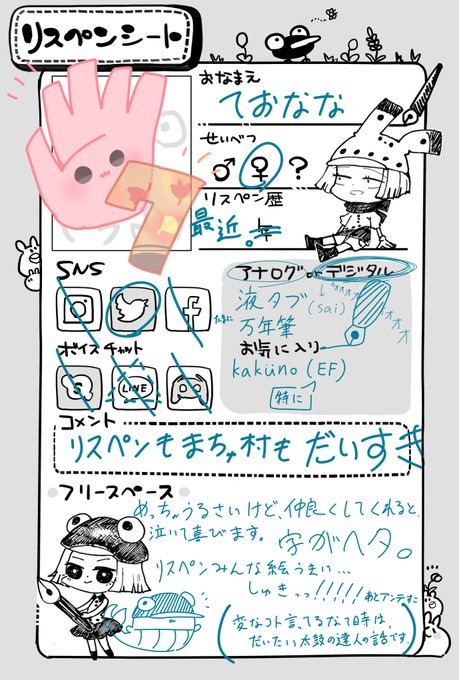 リスペンシート
おなまえ
ておなな
せいべつ
♂ ♀ ?
リスペン歴
最近。年
SNS
ボイスチャット
LINE
アナログ or デジタル
液タブ (sai)
たまに 万年筆
お気に入り
kaküno (EF)
特に
コメント
リスペンもまちゅ村もだいすき
フリースペース
めっちゃうるさいけど、仲良くしてくれると、
泣いて喜びます。
字がヘタ。
リスペンみんな絵うまい…
しゅきっっ!!!!!
あとアンテナに
変なコト言ってるなって時は、
だいたい太鼓の達人の話です。